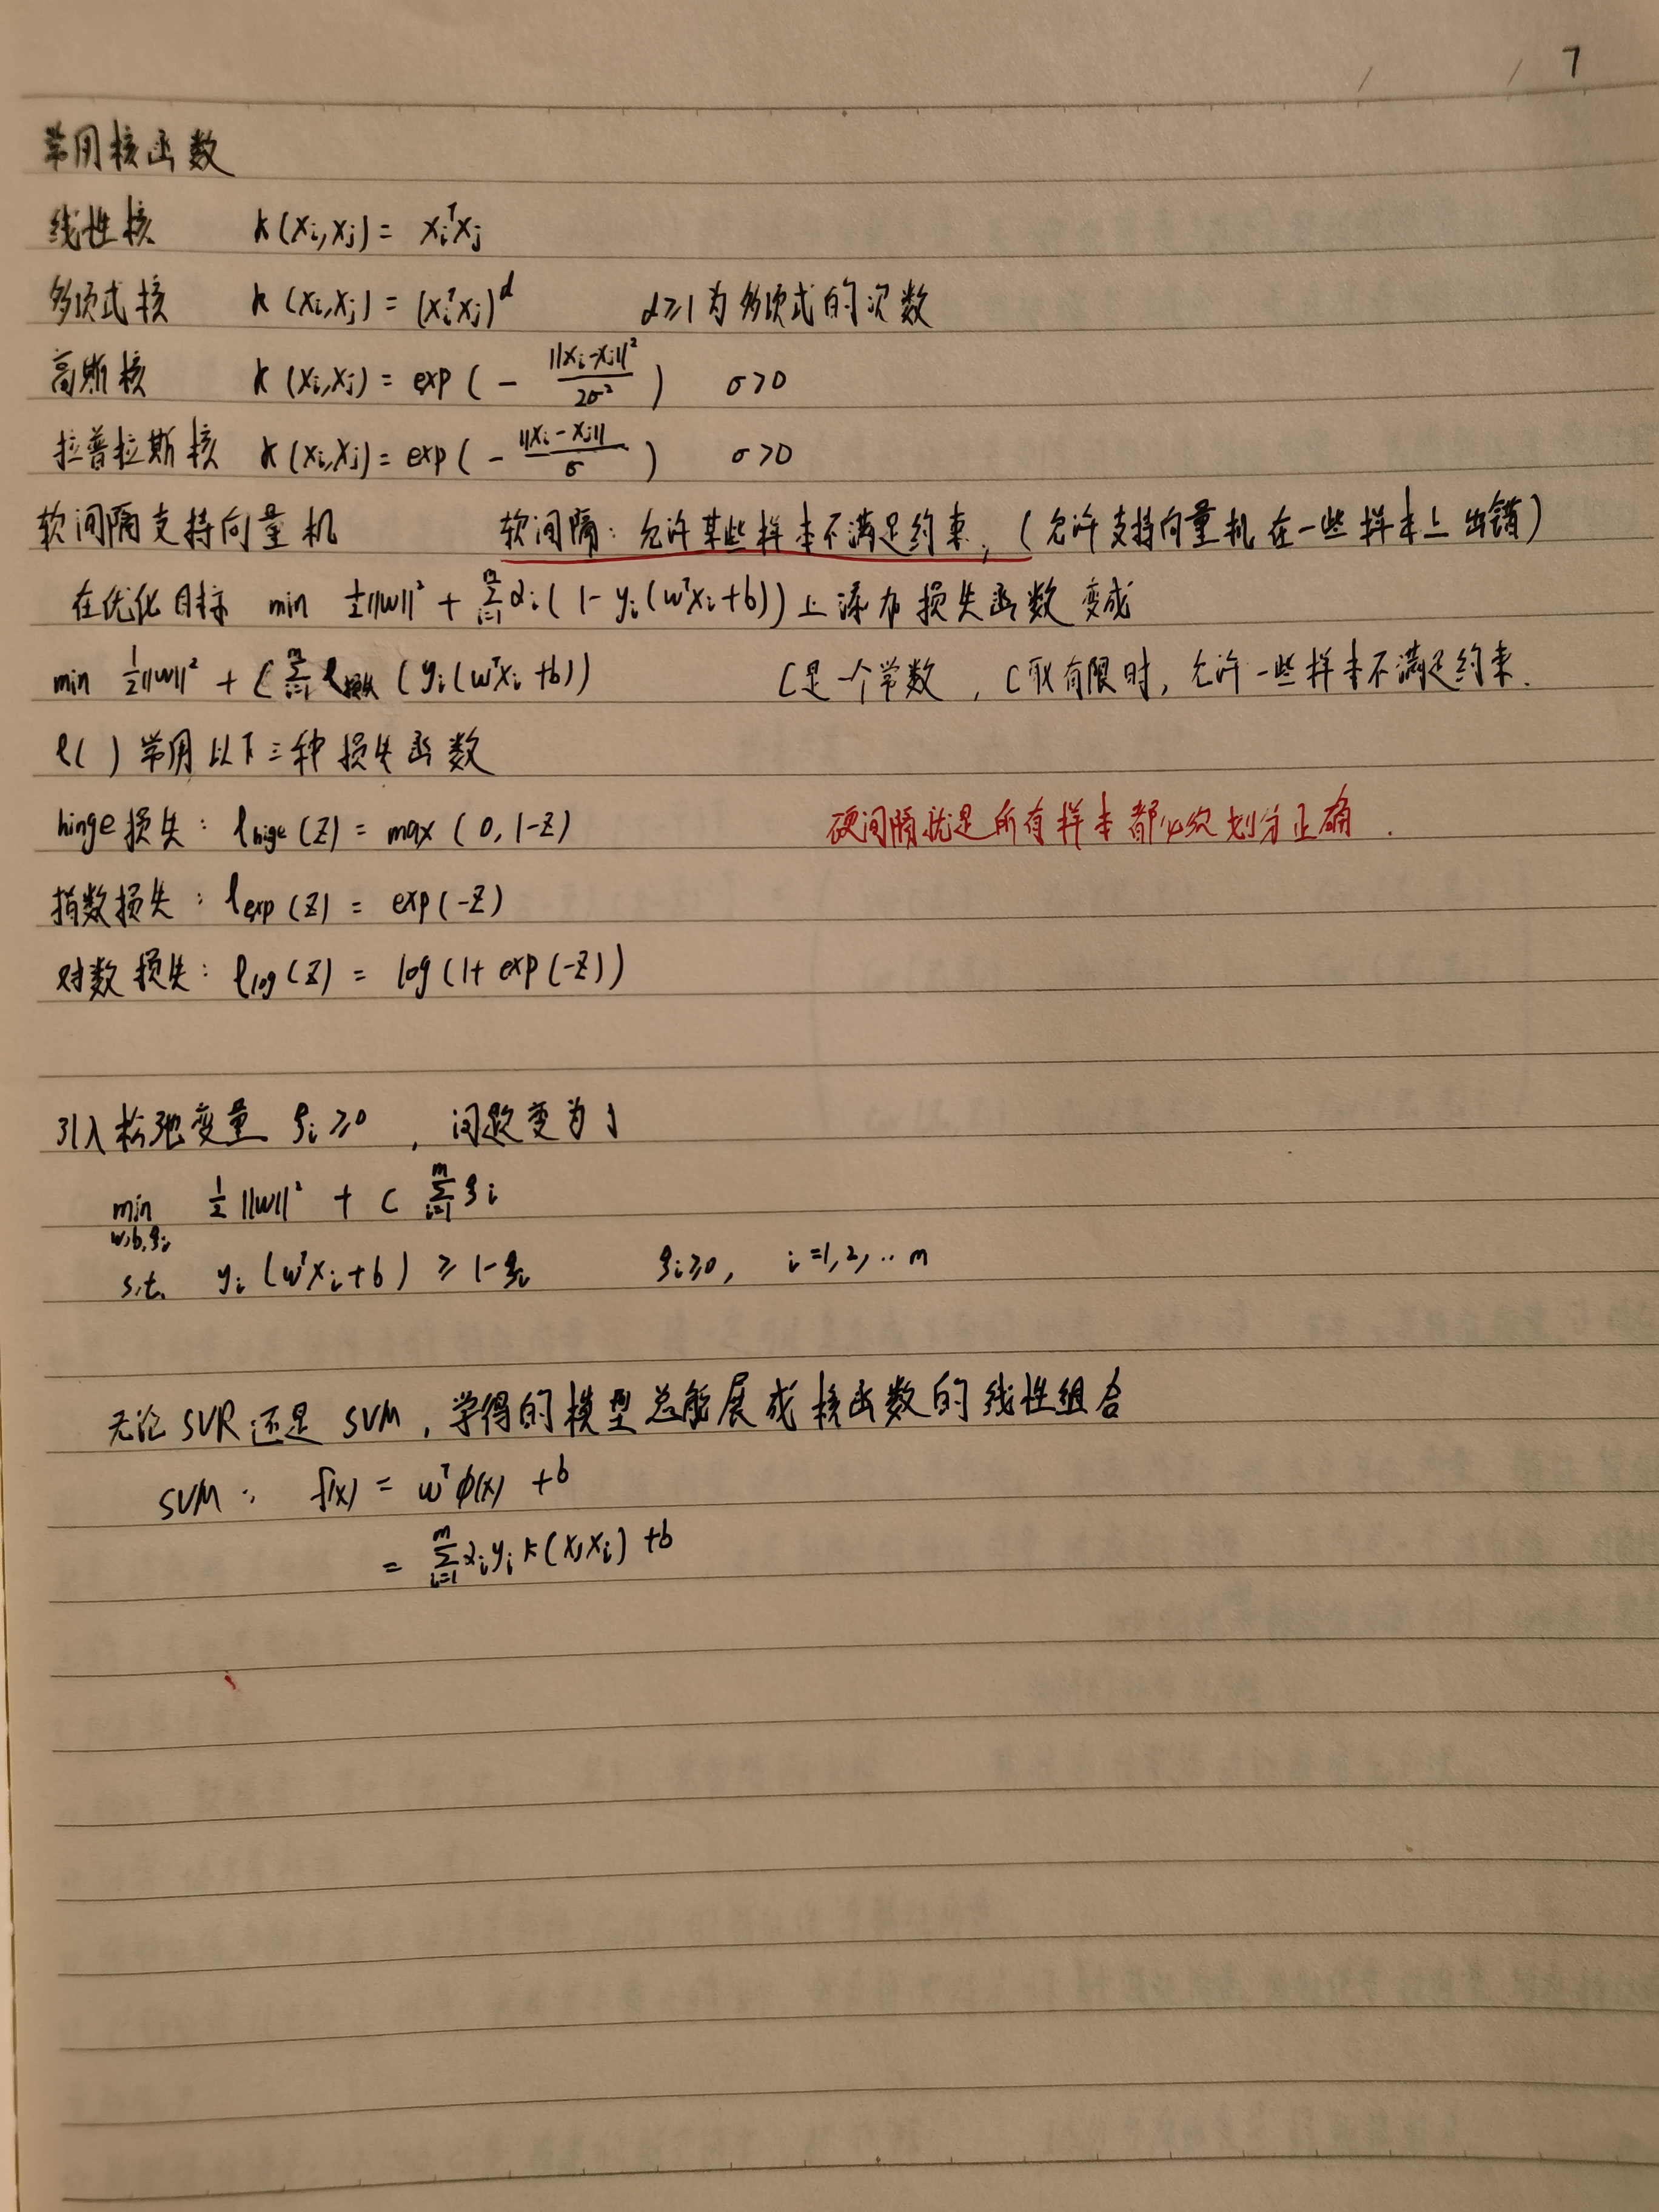 7
常用核函数
线性核 k(xi,xj) = xiᵀxj
多项式核 k(xi,xj) = (xiᵀxj)ᵈ d≥1为多项式的次数
高斯核 k(xi,xj) = exp(- ||xi-xj||²/2σ²) σ>0
拉普拉斯核 k(xi,xj) = exp(- ||xi-xj||/σ) σ>0
软间隔支持向量机 软间隔: 允许某些样本不满足约束, (允许支持向量机在一些样本上出错)
在优化目标 min ½||w||² + Σᵢ₌₁ᵐ αi(1- yi(wᵀxi+b))上添加损失函数变成
min ½||w||² + C Σᵢ₌₁ᵐ ℓ损失(yi(wᵀxi+b)) C是一个常数, C取有限时, 允许一些样本不满足约束.
ℓ( ) 常用以下三种损失函数
hinge损失: ℓhige(z) = max(0, 1-z) 硬间隔就是所有样本都必须划分正确.
指数损失: ℓexp(z) = exp(-z)
对数损失: ℓlog(z) = log(1+ exp(-z))
引入松弛变量 ξi≥0, 问题变为了
min w,b,ξi ½||w||² + C Σᵢ₌₁ᵐ ξi
s.t. yi(wᵀxi+b) ≥ 1-ξi ξi≥0, i=1,2,..m
无论SVR还是SVM, 学得的模型总能展成核函数的线性组合
SVM: f(x) = wᵀφ(x) +b
= Σᵢ₌₁ᵐ αi yi k(x,xi) +b